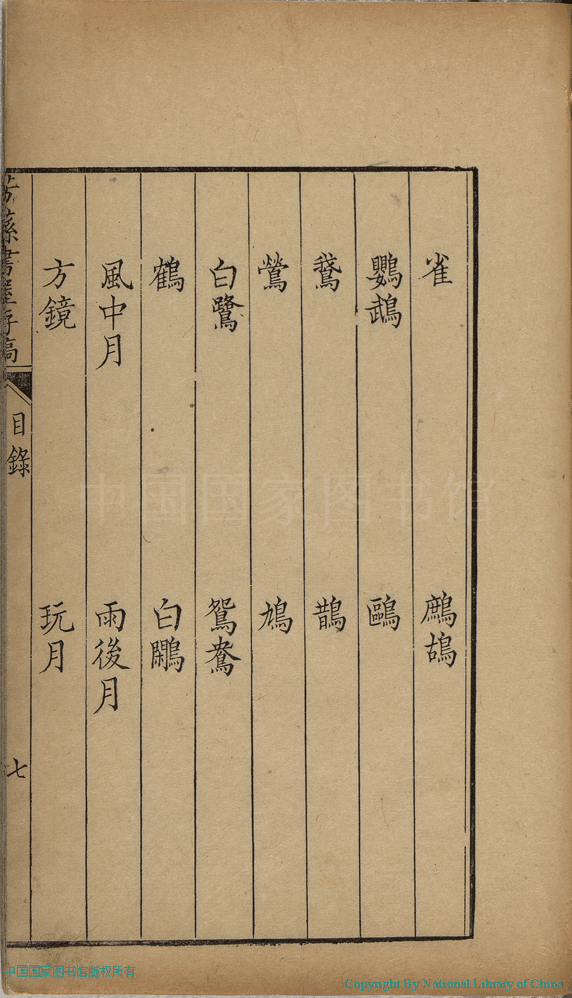 雀 鷓鴣
鸚鵡 鷗
鵞 鵲
鶯 鳩
白鷺 鴛鴦
鶴 白鷴
風中月 雨後月
方鏡 玩月
書屋存稿
目錄
七
中国国家图书馆
中国国家图书馆版权所有
Copyright By National Library of China